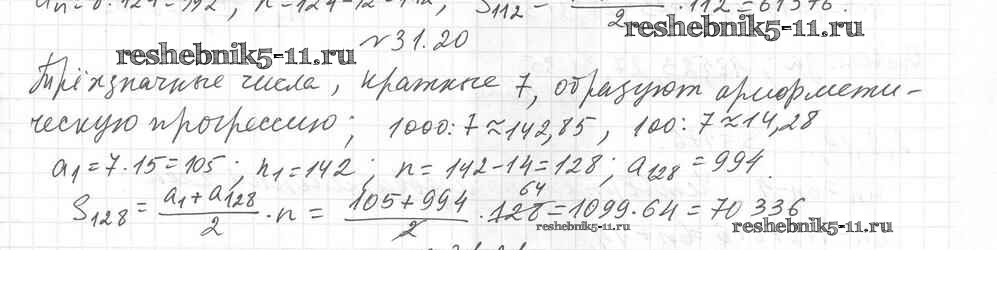 = 61376.
reshebnik5-11.ru
№31.20
reshebnik5-11.ru
Трёхзначные числа, кратные 7, образуют арифмети-
ческую прогрессию; 1000:7≈142,85, 100:7≈14,28
a₁=7·15=105; n₁=142; n=142-14=128; a₁₂₈=994.
S₁₂₈ = (a₁+a₁₂₈)/2 · n = (105+994)/2 · 128 64 = 1099·64 = 70 336
reshebnik5-11.ru
reshebnik5-11.ru